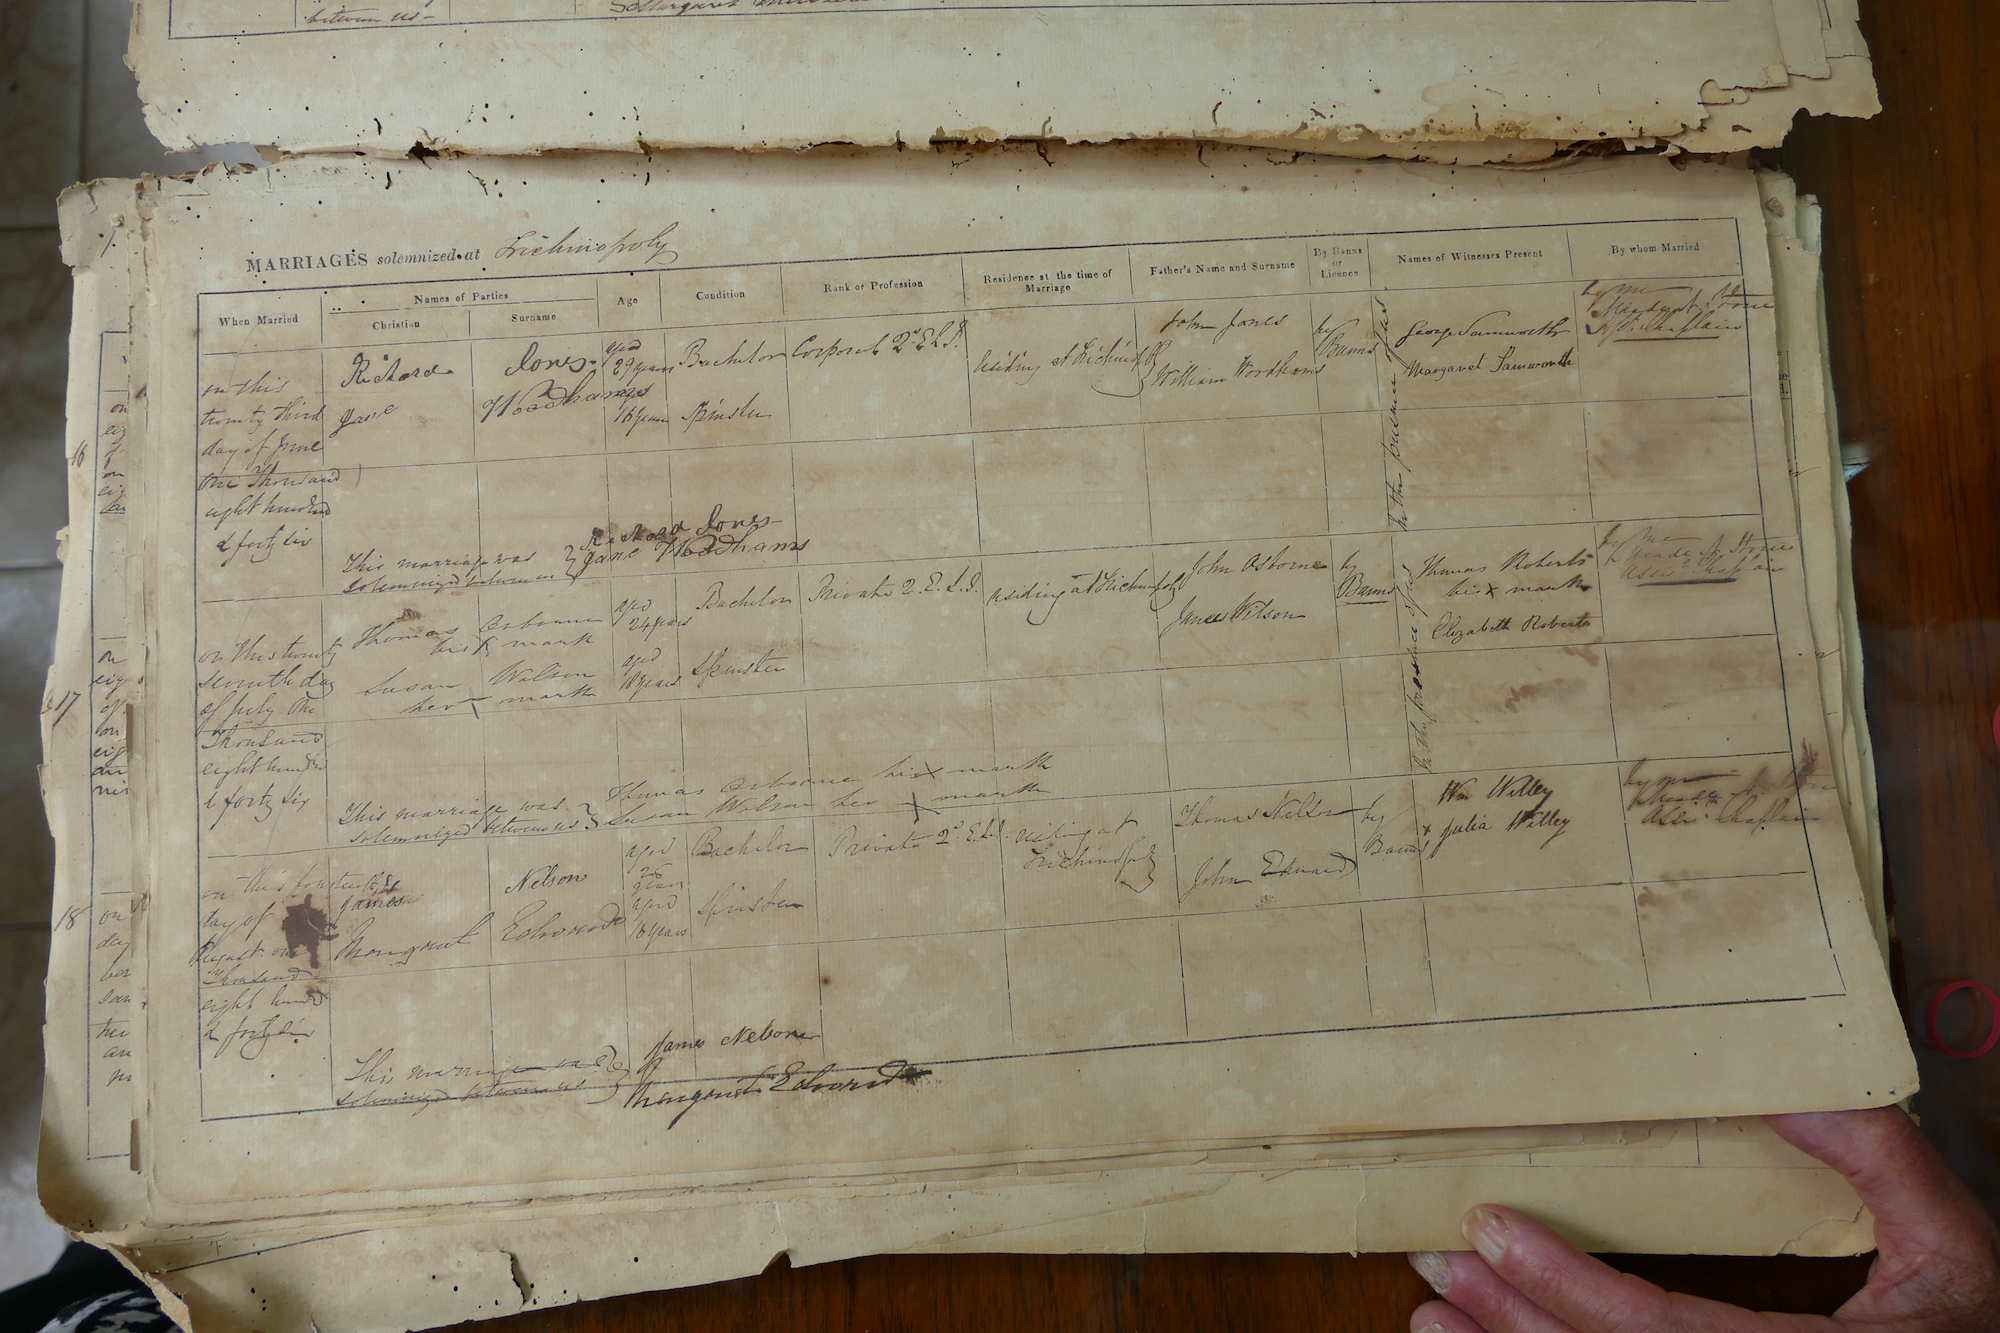 between us -
MARRIAGES solemnized at Trichinopoly
When Married
Names of Parties
Christian
Surname
Age
Condition
Rank or Profession
Residence at the time of Marriage
Father's Name and Surname
By Banns or Licence
Names of Witnesses Present
By whom Married
on this
twenty third
day of June
one Thousand
eight hundred
& forty six
Richard
Jones
aged
29 years
Bachelor
Corporal 2d E.L.I.
residing at Trichinopoly
John Jones
by
Banns
In the presence of us
George Samworth
by me
Chaplain
Jane
Woodhams
aged
18 years
Spinster
William Woodhams
Margaret Samworth
This marriage was
solemnized between us
Richard Jones
Jane Woodhams
16
on this twenty
seventh day
of July One
Thousand
eight hundred
& forty six
Thomas
Osborne
his x mark
aged
24 years
Bachelor
Private 2. E.L.I.
residing at Trichinopoly
John Osborne
by
Banns
In the presence of us
Thomas Roberts
his x mark
by me
Chaplain
Susan
Wilson
her x mark
aged
18 years
Spinster
James Wilson
Elizabeth Roberts
This marriage was
solemnized between us
Thomas Osborne his x mark
Susan Wilson her x mark
17
on this
day of
August one
Thousand
eight hundred
& forty six
James
Nelson
aged
26
years
Bachelor
Private 2d E.L.I.
residing at
Trichinopoly
Thomas Nelson
by
Banns
Wm Willey
by me
Chaplain
Margaret
Edwards
aged
18 years
Spinster
John Edward
x Julia Willey
This marriage was
solemnized between us
James Nelson
Margaret Edwards
18